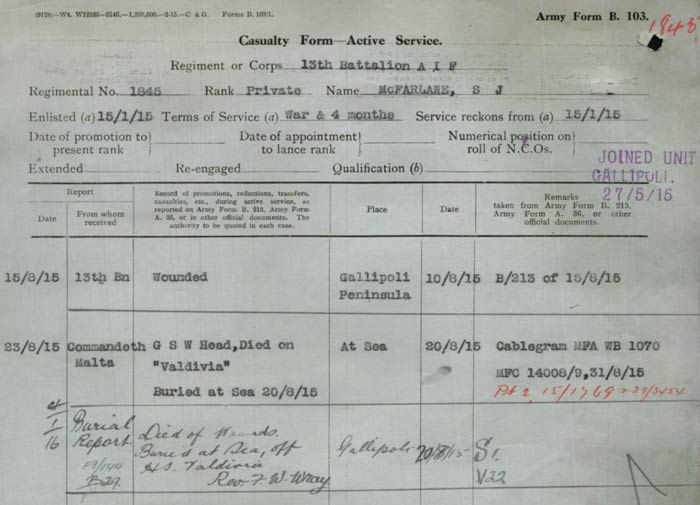 (9179)—Wt. W12165—8146.—1,200,000.—2-15.—C & G. Forms B. 103/1.
Army Form B. 103.
1845
Casualty Form—Active Service.
Regiment or Corps 13th Battalion A I F
Regimental No. 1845 Rank Private Name McFARLANE, S J
Enlisted (a) 15/1/15 Terms of Service (a) War & 4 months Service reckons from (a) 15/1/15
Date of promotion to present rank Date of appointment to lance rank Numerical position on roll of N.C.Os.
JOINED UNIT
GALLIPOLI.
27/5/15
Extended Re-engaged Qualification (b)
Report
Date From whom received
Record of promotions, reductions, transfers, casualties, etc., during active service, as reported on Army Form B. 213, Army Form A. 36, or in other official documents. The authority to be quoted in each case.
Place
Date
Remarks
taken from Army Form B. 213, Army Form A. 36, or other official documents.
15/8/15 13th Bn Wounded Gallipoli Peninsula 10/8/15 B/213 of 15/8/15
23/8/15 Commandeth Malta G S W Head, Died on "Valdivia" At Sea 20/8/15 Cablegram MFA WB 1070
Buried at Sea 20/8/15 MFC 14008/9, 31/8/15
Burial Report Died of Wounds. Gallipoli 20/8/15 S1.
Buried at Sea, off V22
H.S. Valdivia
Rev. F. W. Wray